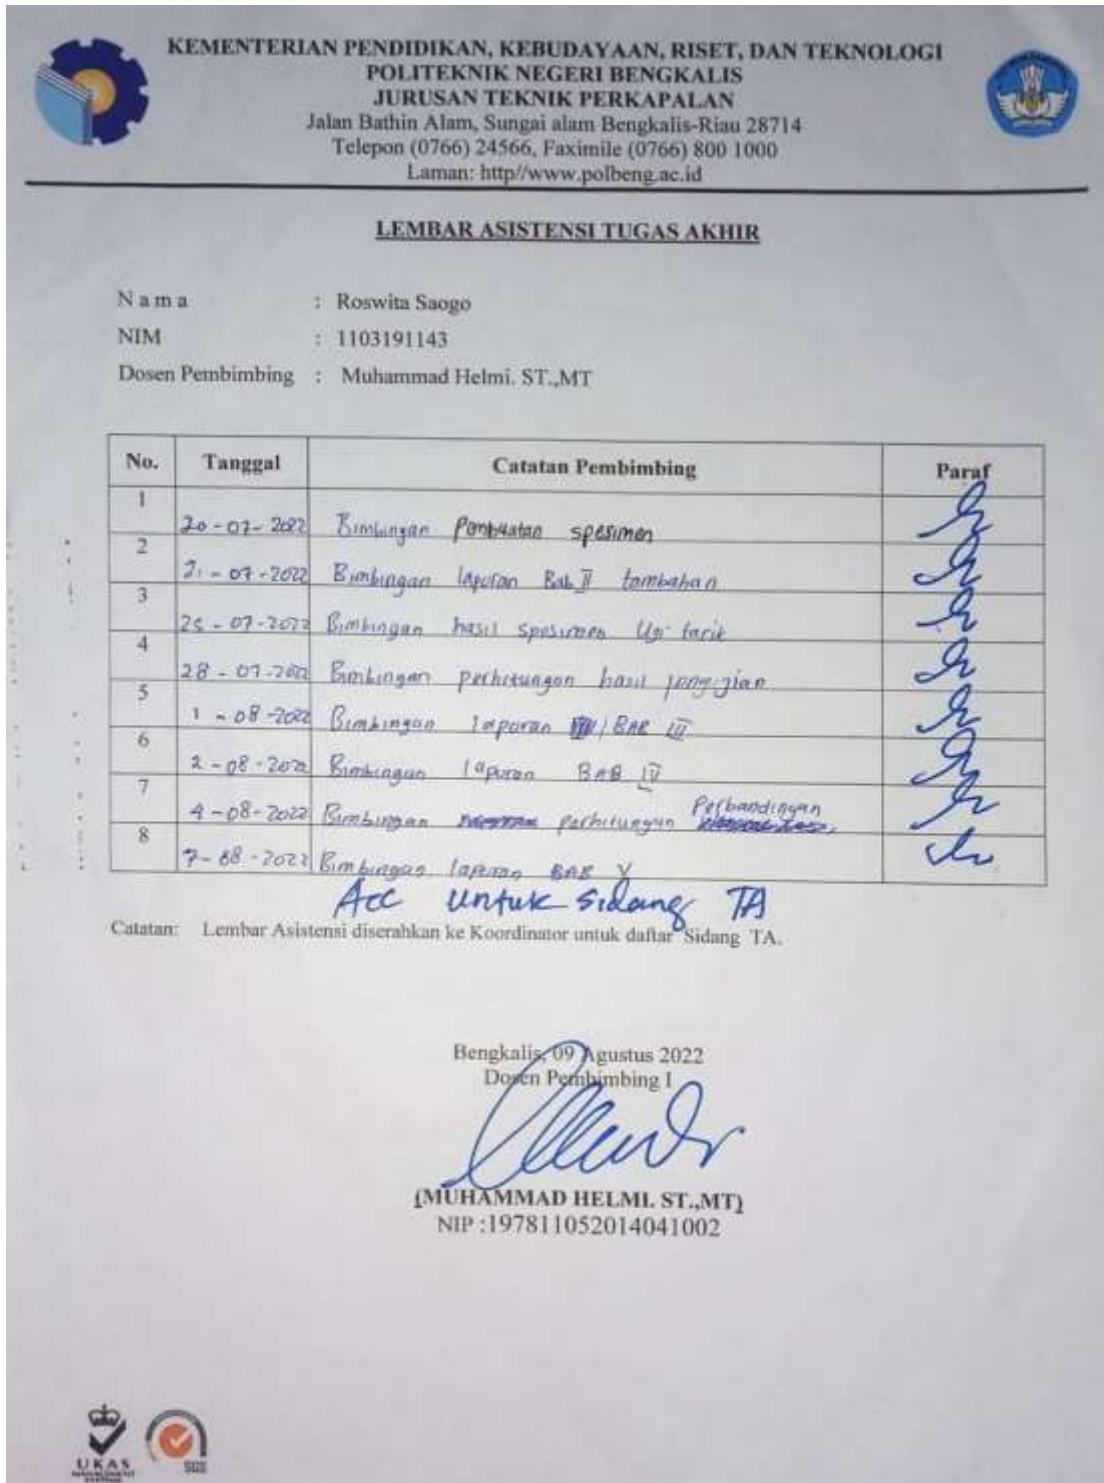 KEMENTERIAN PENDIDIKAN, KEBUDAYAAN, RISET, DAN TEKNOLOGI
POLITEKNIK NEGERI BENGKALIS
JURUSAN TEKNIK PERKAPALAN
Jalan Bathin Alam, Sungai alam Bengkalis-Riau 28714
Telepon (0766) 24566, Faximile (0766) 800 1000
Laman: http//www.polbeng.ac.id
LEMBAR ASISTENSI TUGAS AKHIR
N a m a : Roswita Saogo
NIM : 1103191143
Dosen Pembimbing : Muhammad Helmi. ST.,MT
No. Tanggal Catatan Pembimbing Paraf
1 20-07-2022 Bimbingan Pembuatan spesimen
2 21-07-2022 Bimbingan laporan Bab II tambahan
3 25-07-2022 Bimbingan hasil spesimen Uji tarik
4 28-07-2022 Bimbingan perhitungan hasil pengujian
5 1-08-2022 Bimbingan laporan / BAB III
6 2-08-2022 Bimbingan laporan BAB IV
7 4-08-2022 Bimbingan perhitungan Perbandingan
8 7-08-2022 Bimbingan laporan BAB V
Acc untuk Sidang TA
Catatan: Lembar Asistensi diserahkan ke Koordinator untuk daftar Sidang TA.
Bengkalis, 09 Agustus 2022
Dosen Pembimbing I
(MUHAMMAD HELMI. ST.,MT)
NIP :197811052014041002
UKAS
SGS